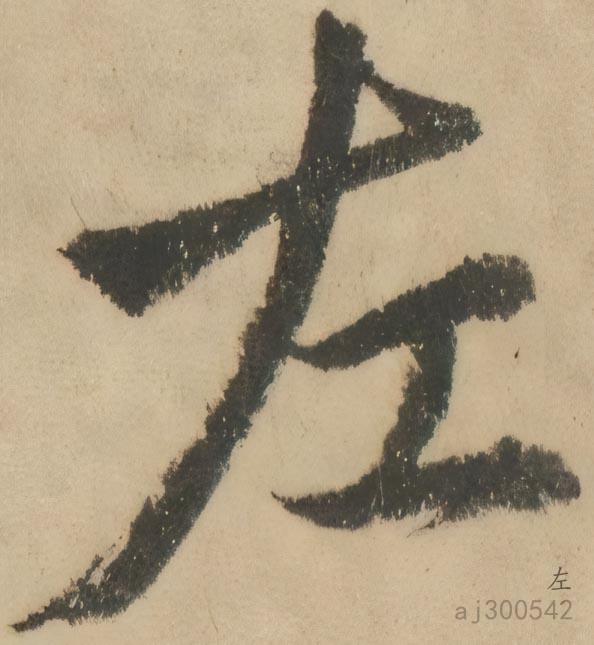 左
左
aj300542